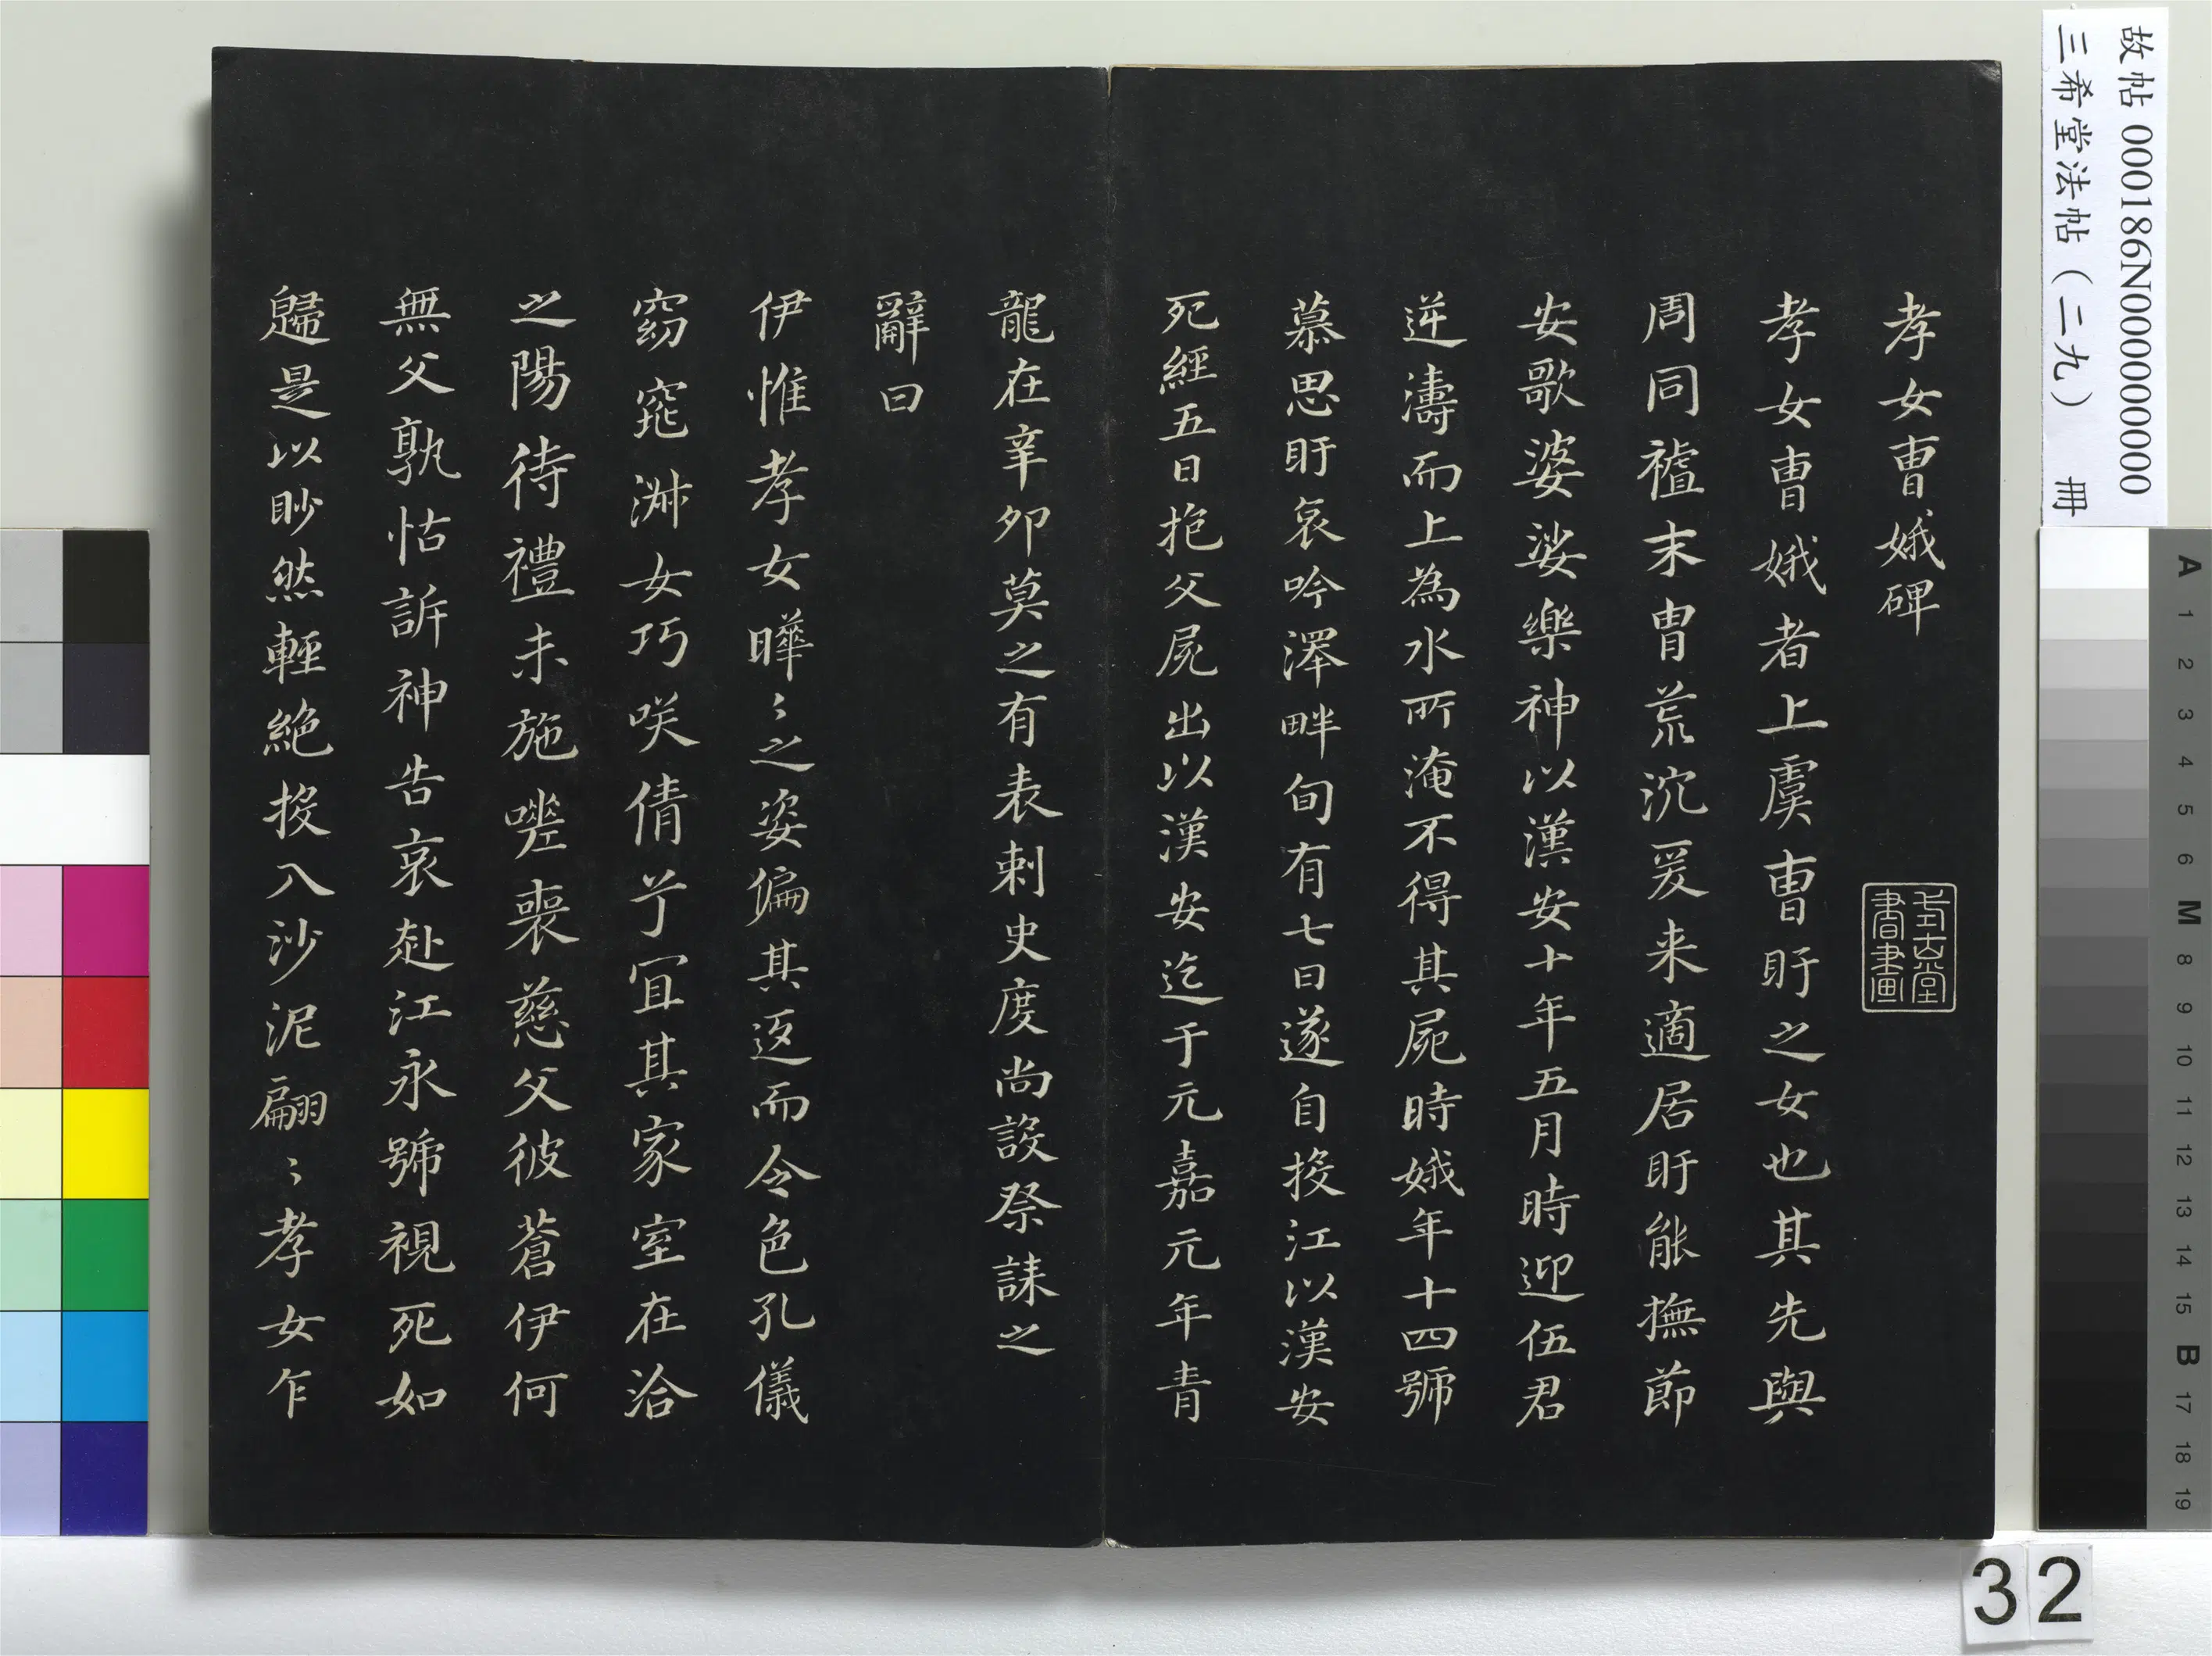 孝女曹娥碑
孝女曹娥者上虞曹盱之女也其先與
周同禇末胄荒沉爰来適居盱能撫節
安歌婆娑樂神以漢安十年五月時迎伍君
逆濤而上為水所淹不得其屍時娥年十四號
慕思盱哀吟澤畔旬有七日遂自投江以漢安
死經五日抱父屍出以漢安迄于元嘉元年青
龍在辛卯莫之有表剌史度尚設祭誄之
辭曰
伊惟孝女曄〻之姿偏其返而令色孔儀
窈窕淑女巧咲倩兮宜其家室在洽
之陽待禮未施嗟喪慈父彼蒼伊何
無父孰怙訴神告哀赴江永號視死如
歸是以眇然輕絕投入沙泥翩〻孝女乍
故帖 000186N000000000
三希堂法帖（二九） 冊
A 1 2 3 4 5 6 M 8 9 10 11 12 13 14 15 B 17 18 19
32